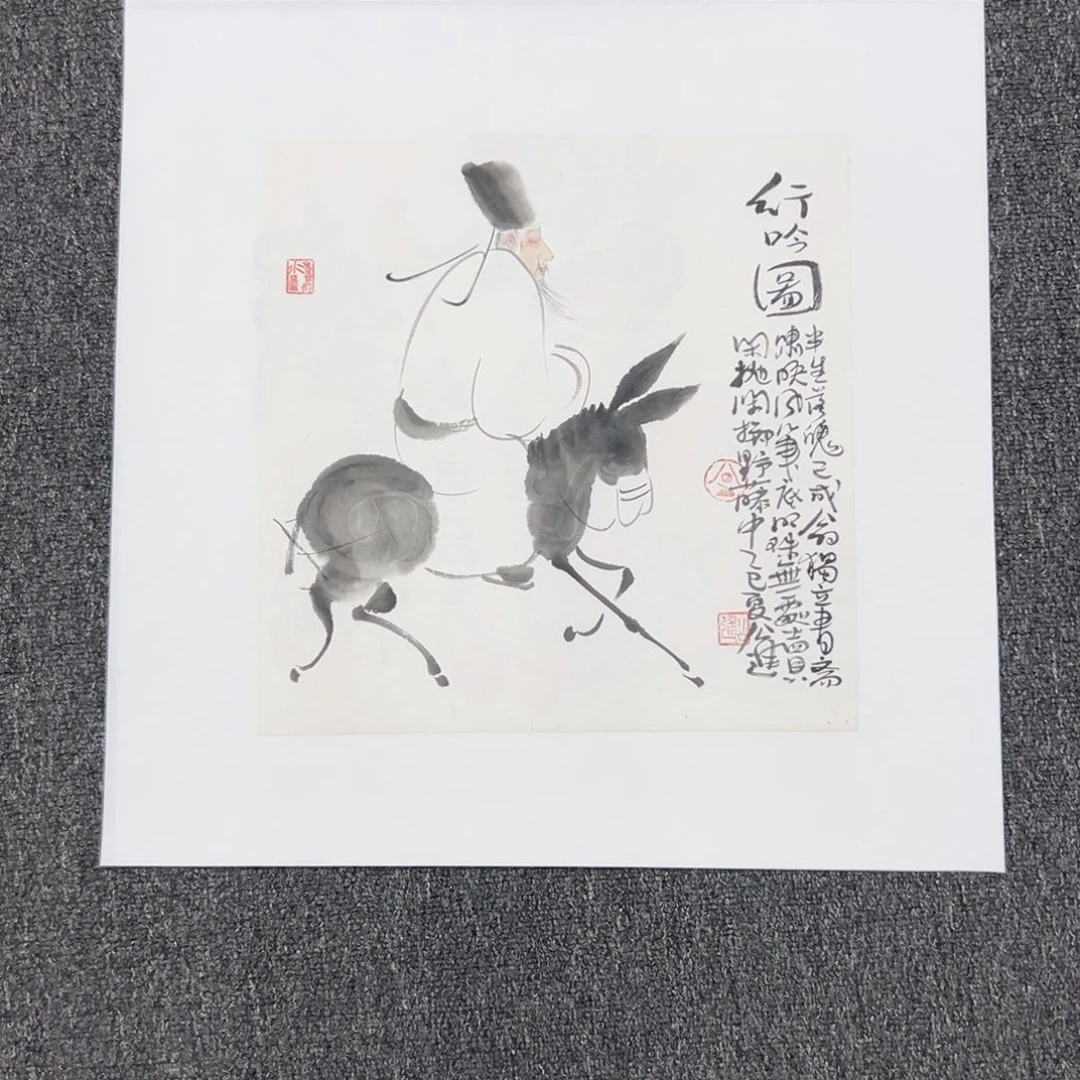 行吟圖
半生落魄已成翁獨立書斋
嘯晚风筆底明珠無處賣
闲抛闲擲野藤中乙巳夏公進